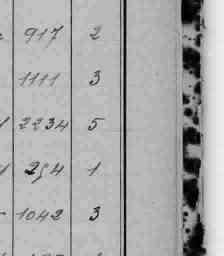 917 2
1111 3
2234 5
254 1
1042 3